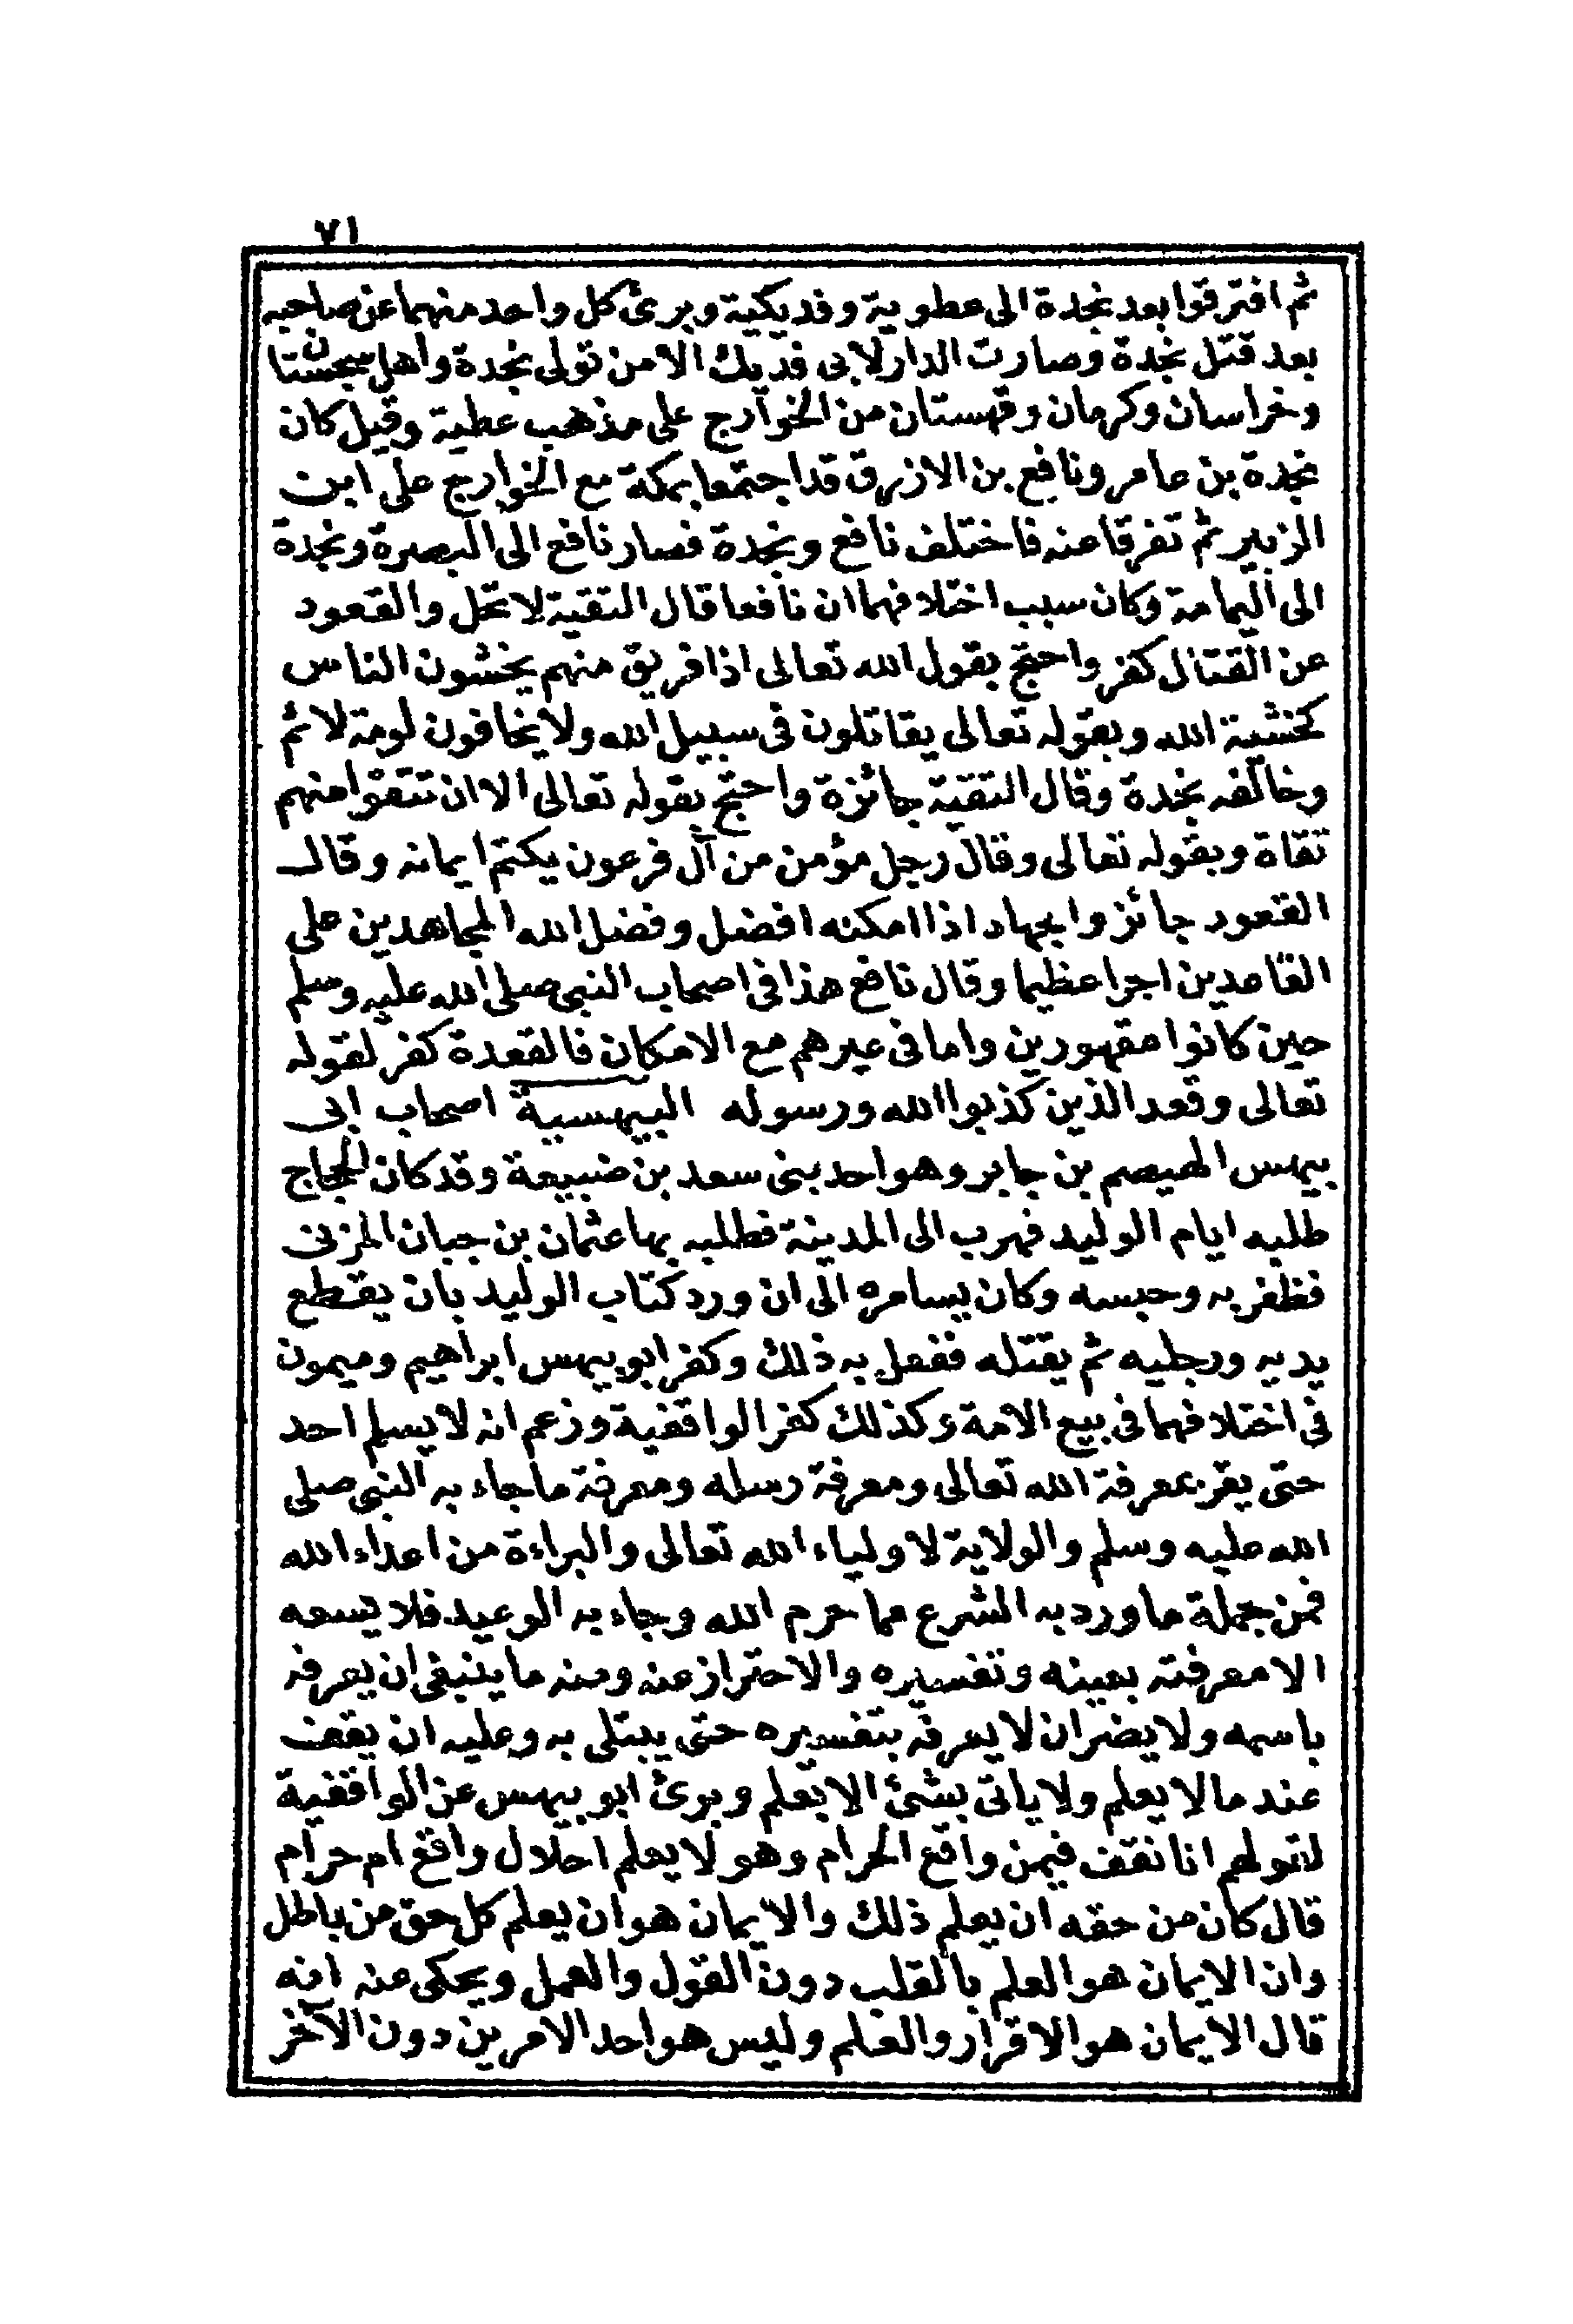 ٧١
ثم افترقوا بعد نجدة الى عطوية وفديكية وبرئ كل واحد منهما عن صاحبه
بعد قتل نجدة وصارت الدار لابى فديك الا من تولى نجدة واهل سجستان
وخراسان وكرمان وقهستان من الخوارج على مذهب عطية وقيل كان
نجدة بن عامر ونافع بن الازرق قد اجتمعا بمكة مع الخوارج على ابن
الزبير ثم تفرقا عنه فاختلف نافع ونجدة فصار نافع الى البصرة ونجدة
الى اليمامة وكان سبب اختلافهما ان نافعا قال التقية لا تحل والقعود
عن القتال كفر واحتج بقول الله تعالى اذا فريق منهم يخشون الناس
كخشية الله وبقوله تعالى يقاتلون فى سبيل الله ولا يخافون لومة لائم
وخالفه نجدة وقال التقية جائزة واحتج بقوله تعالى الا ان تتقوا منهم
تقاة وبقوله تعالى وقال رجل مؤمن من آل فرعون يكتم ايمانه وقال
القعود جائز والجهاد اذا امكنه افضل وفضل الله المجاهدين على
القاعدين اجرا عظيما وقال نافع هذا فى اصحاب النبى صلى الله عليه وسلم
حين كانوا مقهورين واما فى غيرهم مع الامكان فالقعدة كفر لقوله
تعالى وقعد الذين كذبوا الله ورسوله البيهسية اصحاب ابى
بيهس الهيصم بن جابر وهو احد بنى سعد بن ضبيعة وقد كان الحجاج
طلبه ايام الوليد فهرب الى المدينة فطلبه بها عثمان بن جبان المزنى
فظفر به وحبسه وكان يسامره الى ان ورد كتاب الوليد بان يقطع
يديه ورجليه ثم يقتله ففعل به ذلك وكفر ابو بيهس ابراهيم وميمون
فى اختلافهما فى بيع الامة وكذلك كفر الواقفية وزعم انه لا يسلم احد
حتى يقر بمعرفة الله تعالى ومعرفة رسله ومعرفة ما جاء به النبى صلى
الله عليه وسلم والولاية لاولياء الله تعالى والبراءة من اعداء الله
فمن جملة ما ورد به الشرع مما حرم الله وجاء به الوعيد فلا يسعه
الا معرفته بعينه وتفسيره والاحتراز عنه ومنه ما ينبغى ان يعرفه
باسمه ولا يضر ان لا يعرفه بتفسيره حتى يبتلى به وعليه ان يقف
عند ما لا يعلم ولا ياتى بشئ الا بعلم وبرئ ابو بيهس عن الواقفية
لقولهم انا نقف فيمن واقع الحرام وهو لا يعلم احلال واقع ام حرام
قال كان من حقه ان يعلم ذلك والايمان هو ان يعلم كل حق من باطل
وان الايمان هو العلم بالقلب دون القول والعمل ويحكى عنه انه
قال الايمان هو الاقرار والعلم وليس هو احد الامرين دون الآخر